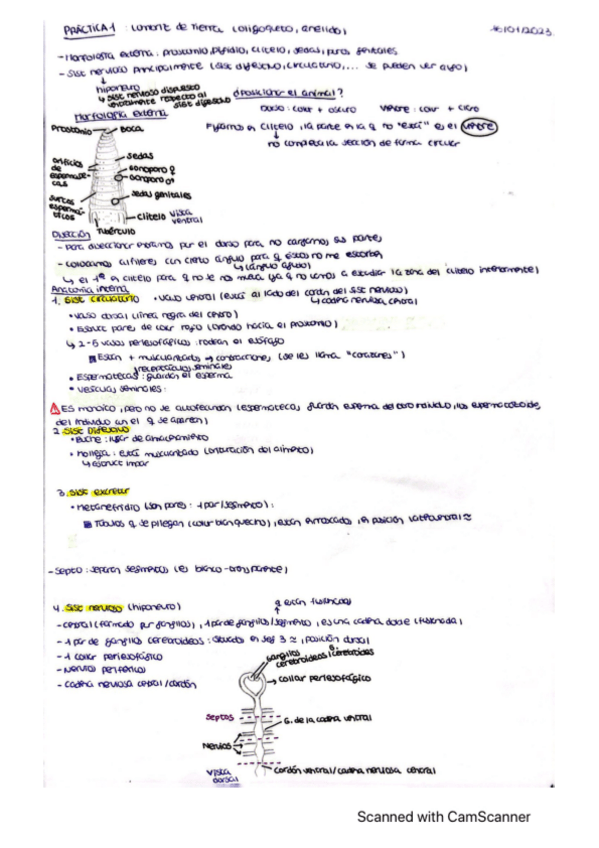 PRÁCTICA 1 : Lombriz de Tierra (oligoqueto, anélido)
/01/2023
- Morfología externa: prostomio, pigidio, clitelo, sedas, poros genitales
- Sist nervioso principalmente (sist digestivo, circulatorio, ... se pueden ver algo)
hiponeuro
↳ Sist nervioso dispuesto ventralmente respecto al sist digestivo
¿posicionar el animal?
Dorso: color + oscuro Vientre: color + claro
Morfología externa
Fijarnos en clitelo, la parte en la q no "está" es el vientre
no completa la sección de forma circular
Prostomio
Boca
orificios de espermatecas
sedas
gonoporo ♀
gonoporo ♂
surcos espermáticos
sedas genitales
clitelo
Vista ventral
Tubérculo
Disección
- para diseccionar entramos por el dorso para no cargarnos sus partes
- colocamos alfileres con cierto ángulo para q éstos no me estorben
↳ (ángulo agudo)
↳ el 1º en clitelo para q no se nos mueva (ya q no vamos a estudiar la zona del clitelo internamente)
Anatomía interna
1. Sist circulatorio
• vaso ventral (está al lado del cordón del sist nervioso)
↳ cadena nerviosa central
• vaso dorsal (línea negra del centro)
• Estruct pares de color rojo (yendo hacia el prostomio)
↳ 2-5 vasos periesofágicos: rodean el esófago
Están + musculados → contracciones (se les llama "corazones")
receptáculos seminales
• Espermatecas: guardan el esperma
• vesículas seminales:
Es monoico, pero no se autofecundan (espermatecas guardan esperma del otro individuo, los espermatozoides del individuo con el q se aparean)
2. Sist Digestivo
• Buche: lugar de almacenamiento
• Molleja: está musculado (trituración del alimento)
↳ estruct impar
3. Sist excretor
• metanefridio (son pares: 1 par/segmento):
Túbulos q se pliegan (color blanquecino), están enroscados, en posición lateroventral ≈
- Septo: separan segmentos (es blanco-transparente)
4. Sist nervioso (hiponeuro)
q están fusionados
- central (formado por ganglios), 1 par de ganglios/segmento, es una cadena doble (fusionada)
- 1 par de ganglios cerebroideos: situados en seg 3 ≈, posición dorsal
- 1 collar periesofágico
- Nervios periféricos
- cadena nerviosa central/cordón
ganglios cerebroideos
collar periesofágico
Septos
G. de la cadena ventral
Nervios
Vista dorsal
Cordón ventral/cadena nerviosa central
Scanned with CamScanner